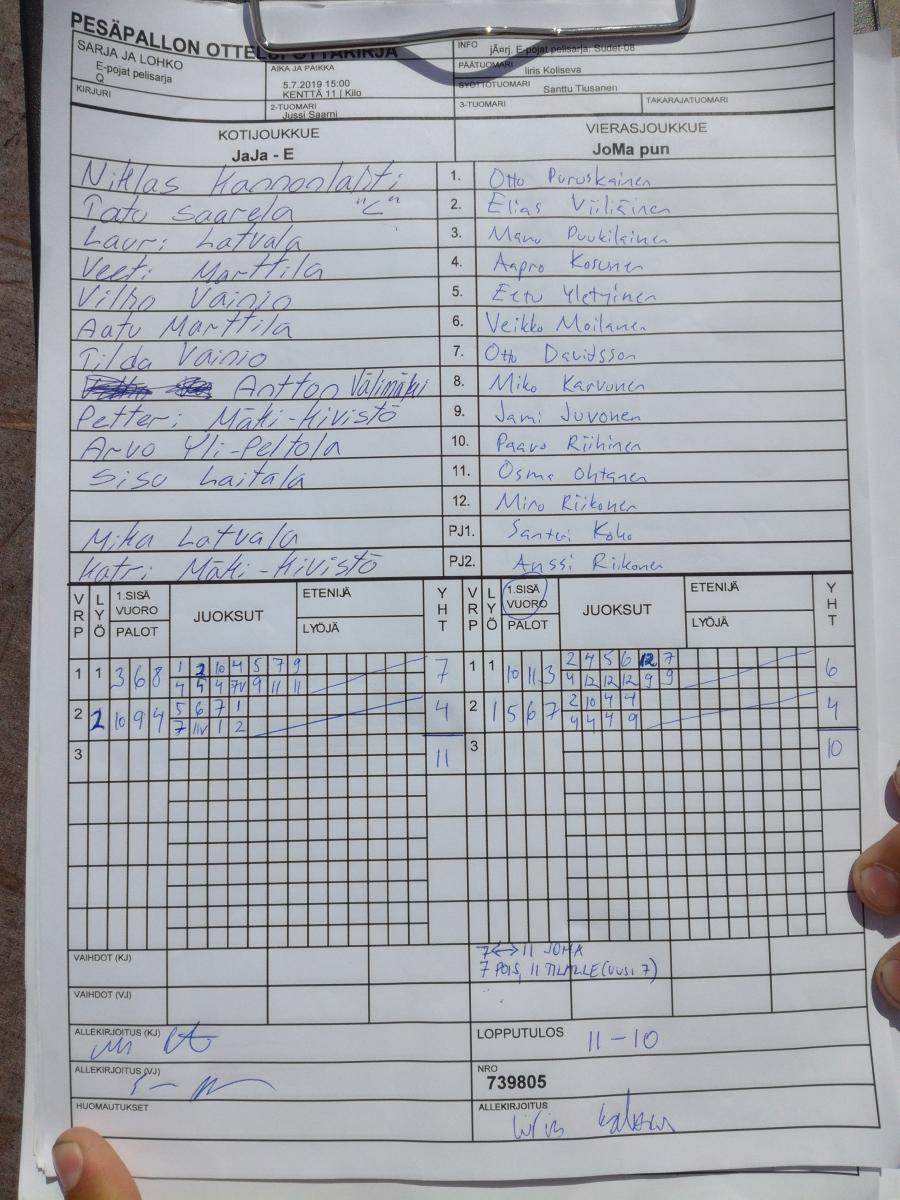 PESÄPALLON OTTELUPÖYTÄKIRJA
SARJA JA LOHKO
E-pojat pelisarja
Q
KIRJURI
AIKA JA PAIKKA
5.7.2019 15:00
KENTTÄ 11 | Kilo
2-TUOMARI
Jussi Saarni
INFO jÃ¤rj. E-pojat pelisarja: Sudet-08
PÄÄTUOMARI Iiris Koliseva
SYÖTTÖTUOMARI Santtu Tiusanen
3-TUOMARI TAKARAJATUOMARI
KOTIJOUKKUE VIERASJOUKKUE
JaJa - E JoMa pun
Niklas Kannonlahti 1. Otto Puruskainen
Tatu Saarela "C" 2. Elias Viiliäinen
Lauri Latvala 3. Manu Puukilainen
Veeti Marttila 4. Aapro Kosunen
Vilho Vainio 5. Eetu Yletyinen
Aatu Marttila 6. Veikko Moilanen
Tilda Vainio 7. Otto Davidsson
Antton Välimäki 8. Miko Karvonen
Petteri Mäki-Kivistö 9. Jami Juvonen
Arvo Yli-Peltola 10. Paavo Riihinen
Sisu Laitala 11. Osma Ohtanen
12. Miro Riikonen
Mika Latvala PJ1. Santeri Koho
Katri Mäki-Kivistö PJ2. Anssi Riikonen
VRP LYÖ 1.SISÄ VUORO PALOT JUOKSUT ETENIJÄ LYÖJÄ YHT VRP LYÖ 1.SISÄ VUORO PALOT JUOKSUT ETENIJÄ LYÖJÄ YHT
1 1 3 6 8 1 2 10 4 5 7 9 7 1 1 10 11 3 2 4 5 6 12 7 6
4 4 4 7V 9 11 11 4 12 12 12 9 9
2 2 10 9 4 5 6 7 1 4 2 1 5 6 7 2 10 4 4 4
7 11V 1 2 4 4 4 9
3 11 3 10
VAIHDOT (KJ) 7<->11 JOMA
7 POIS, 11 TILALLE (UUSI 7)
VAIHDOT (VJ)
ALLEKIRJOITUS (KJ) LOPPUTULOS 11-10
ALLEKIRJOITUS (VJ) NRO
739805
HUOMAUTUKSET ALLEKIRJOITUS